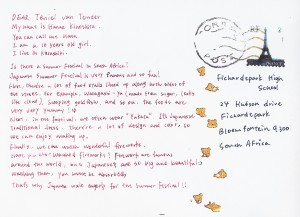 DEAR
My name is
You can call me
I am a 10 years old girl.
I live in
Is there a Summer Festival in South Africa?
Japanese Summer Festival is very famous and so fun!
First, there's a lot of food stalls lined up along both sides of
the street. For example,
scooping goldfish, and so on. The foods are
very very yummy!
Next, in the festival, we often wear "Yukata". It's Japanese
traditional dress. There's a lot of design and color, so
we can enjoy
Finally, we can watch wonderful fireworks.
Have you ever watched fireworks? Fireworks are famous
around the world, but Japanese's are so big and beautiful
watching them, you would be
That's why Japan the Summer Festival!!
Fichardspark High
School
24 Hudson drive
Ficardspark
Bloemfontein 9300
South Africa